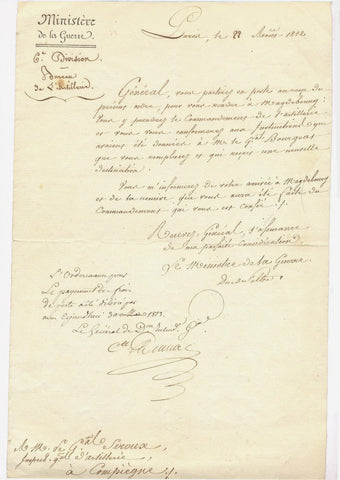 Ministère
de la Guerre.
6e Division
Bureau
de l'artillerie
Paris, le 22 Août 1812
Général, vous partirez en poste au reçu du
présent ordre, pour vous rendre à Magdebourg;
vous y prendrez le Commandement de l'artillerie
et vous vous conformerez aux Instructions que
avaient été données à Mr le Gal Bourgeat
que vous remplacez et qui reçoit une nouvelle
destination.
Vous m'informerez de votre arrivée à Magdebourg
et de la remise que vous aura été faite du
Commandement qui vous est confié.
Recevez, Général, l'assurance
de ma parfaite Considération.
Le Ministre de la Guerre
Duc de
L'Ordonnance pour
le payement de frais
de poste a été délivrée
Le Général de
A Mr. Le Gal Seroux,
Inspect. gal d'artillerie
à Compiègne